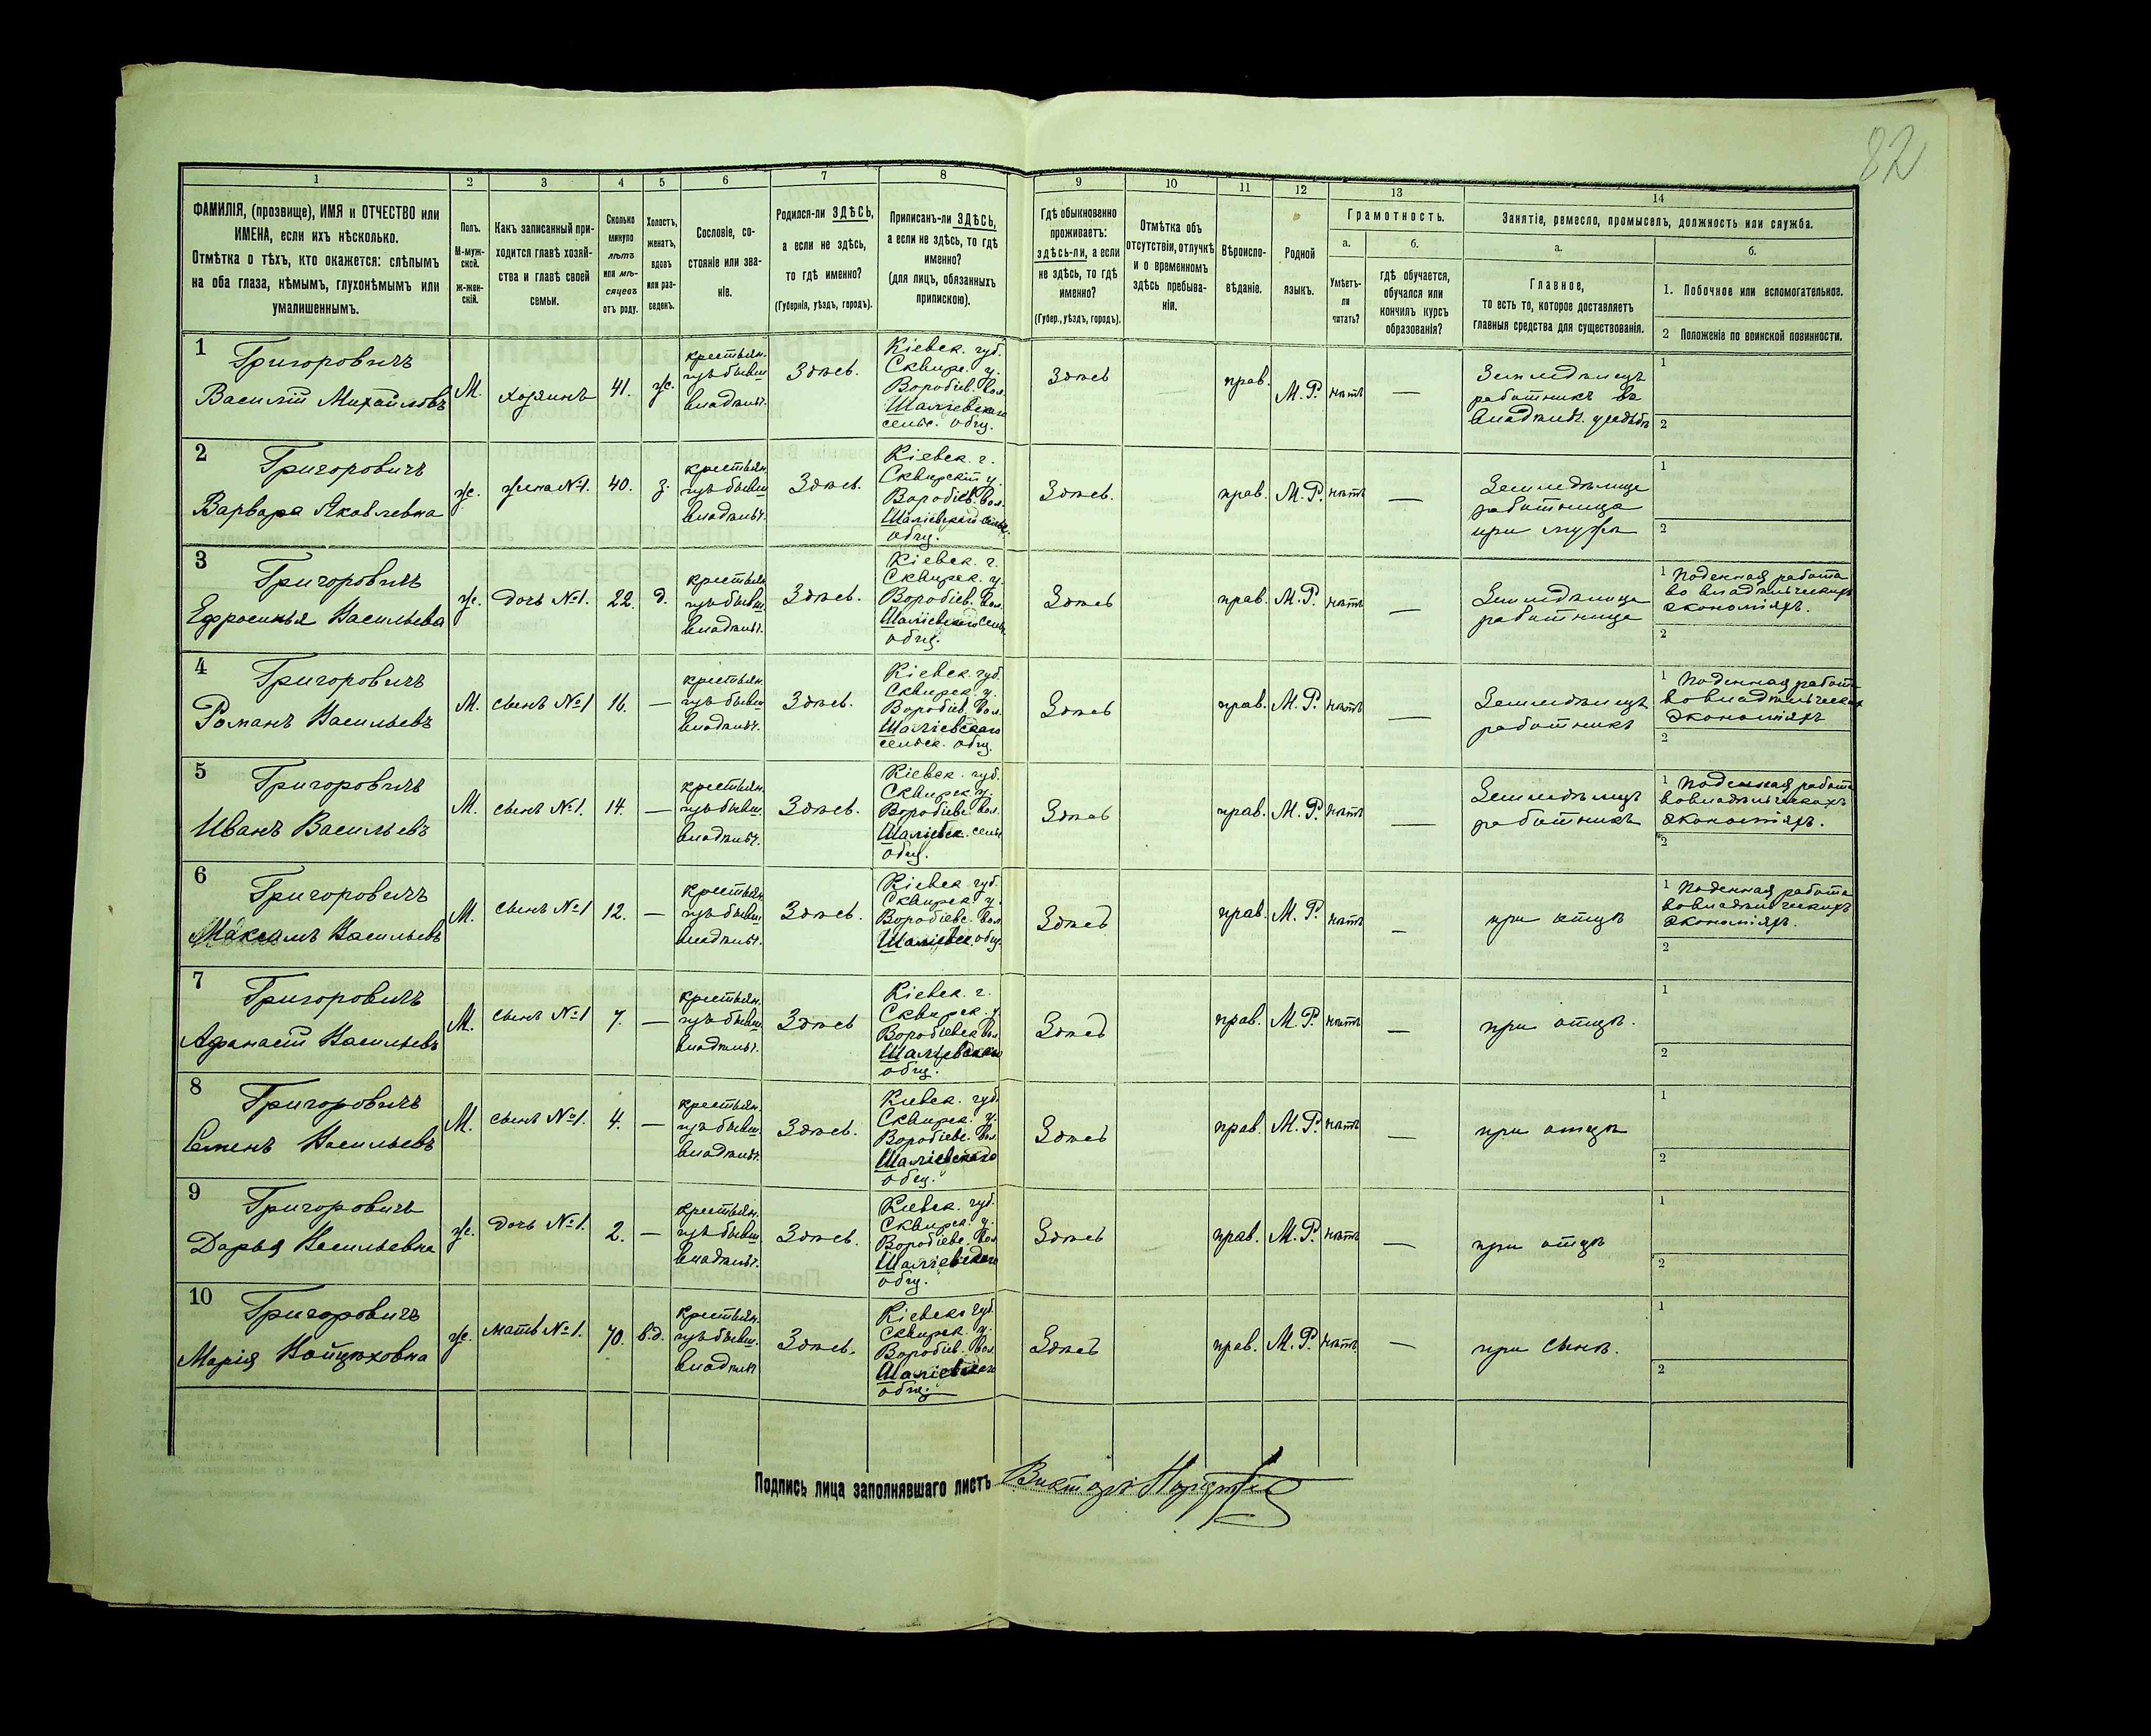 82
1 2 3 4 5 6 7 8 9 10 11 12 13 14
ФАМИЛІЯ, (прозвище), ИМЯ и ОТЧЕСТВО или
ИМЕНА, если ихъ нѣсколько.
Отмѣтка о тѣхъ, кто окажется: слѣпымъ
на оба глаза, нѣмымъ, глухонѣмымъ или
умалишеннымъ.
Полъ.
М-муж-
ской.
ж-жен-
скій.
Какъ записанный при-
ходится главѣ хозяй-
ства и главѣ своей
семьи.
Сколько
минуло
лѣтъ
или мѣ-
сяцевъ
отъ роду.
Холостъ,
женатъ,
вдовъ
или раз-
веденъ.
Сословіе, со-
стояніе или зва-
ніе.
Родился-ли ЗДѢСЬ,
а если не здѣсь,
то гдѣ именно?
(Губернія, уѣздъ, городъ).
Приписанъ-ли ЗДѢСЬ,
а если не здѣсь, то гдѣ
именно?
(для лицъ, обязанныхъ
припискою).
Гдѣ обыкновенно
проживаетъ:
здѣсь-ли, а если
не здѣсь, то гдѣ
именно?
(Губер., уѣздъ, городъ).
Отмѣтка объ
отсутствіи, отлучкѣ
и о временномъ
здѣсь пребыва-
ніи.
Вѣроиспо-
вѣданіе.
Родной
языкъ.
Грамотность.
а.
Умѣетъ-
ли
читать?
б.
гдѣ обучается,
обучался или
кончилъ курсъ
образованія?
Занятіе, ремесло, промыселъ, должность или служба.
а.
Главное,
то есть то, которое доставляетъ
главныя средства для существованія.
б.
1. Побочное или вспомогательное.
2 Положеніе по воинской повинности.
1
Григоровичъ
Василій Михайловъ
М.
хозяинъ
41.
ж.
крестьян.
изъ бывш.
владѣльч.
Здѣсь.
Кіевск. губ.
Сквирс. у.
Воробіев. вол.
Шаліевского
сельс. общ.
Здѣсь
прав.
М. Р.
нѣтъ
—
Земледѣлецъ
работникъ въ
владѣльч. усадьбѣ
1
2
2
Григоровичъ
Варвара Яковлевна
ж.
жена №1.
40.
з.
крестьян.
изъ бывш.
владѣльч.
Здѣсь.
Кіевск. г.
Сквирскій у.
Воробіев. вол.
Шаліевского сельс.
общ.
Здѣсь.
прав.
М. Р.
нѣтъ
—
Земледѣлица
работница
при мужѣ
1
2
3
Григоровичъ
Ефросинья Васильева
ж.
дочь №1.
22.
д.
крестьян.
изъ бывш.
владѣльч.
Здѣсь.
Кіевск. г.
Сквирск. у.
Воробіев. вол.
Шаліевского сельс.
общ.
Здѣсь
прав.
М. Р.
нѣтъ
—
Земледѣлица
работница
1 Поденная работа
во владѣльческихъ
экономіяхъ.
2
4
Григоровичъ
Романъ Васильевъ
М.
сынъ №1
16.
—
крестьян.
изъ бывш.
владѣльч.
Здѣсь.
Кіевск. губ.
Сквирск. у.
Воробіев. вол.
Шаліевского
сельск. общ.
Здѣсь
прав.
М. Р.
нѣтъ
—
Земледѣлецъ
работникъ
1 Поденная работа
во владѣльческихъ
экономіяхъ
2
5
Григоровичъ
Иванъ Васильевъ
М.
сынъ №1.
14.
—
крестьян.
изъ бывш.
владѣльч.
Здѣсь.
Кіевск. губ.
Сквирск. у.
Воробіевс. вол.
Шаліевск. сельс.
общ.
Здѣсь
прав.
М. Р.
нѣтъ
—
Земледѣлецъ
работникъ
1 Поденная работа
во владѣльческихъ
экономіяхъ.
2
6
Григоровичъ
Максимъ Васильевъ
М.
сынъ №1
12.
—
крестьян.
изъ бывш.
владѣльч.
Здѣсь.
Кіевск. губ.
Сквирск. у.
Воробіевс. вол.
Шаліевск. общ.
Здѣсь
прав.
М. Р.
нѣтъ
—
при отцѣ
1 Поденная работа
во владѣльческихъ
экономіяхъ.
2
7
Григоровичъ
Афанасій Васильевъ
М.
сынъ №1
7.
—
крестьян.
изъ бывш.
владѣльч.
Здѣсь
Кіевск. г.
Сквирск. у.
Воробіевск. вол.
Шаліевского
общ.
Здѣсь
прав.
М. Р.
нѣтъ
—
при отцѣ.
1
2
8
Григоровичъ
Семенъ Васильевъ
М.
сынъ №1.
4.
—
крестьян.
изъ бывш.
владѣльч.
Здѣсь.
Кіевск. губ.
Сквирск. у.
Воробіевс. вол.
Шаліевского
общ.
Здѣсь
прав.
М. Р.
нѣтъ
—
при отцѣ
1
2
9
Григоровичъ
Дарья Васильевна
ж.
дочь №1.
2.
—
крестьян.
изъ бывш.
владѣльч.
Здѣсь.
Кіевск. губ.
Сквирск. у.
Воробіевс. вол.
Шаліевского
общ.
Здѣсь
прав.
М. Р.
нѣтъ
—
при отцѣ
1
2
10
Григоровичъ
Марія Войцѣховна
ж.
мать №1.
70.
вд.
крестьян.
изъ бывш.
владѣльч.
Здѣсь.
Кіевск. губ.
Сквирск. у.
Воробіев. вол.
Шаліевского
общ.
Здѣсь
прав.
М. Р.
нѣтъ.
—
при сынѣ.
1
2
Подпись лица заполнявшаго листъ Викторъ